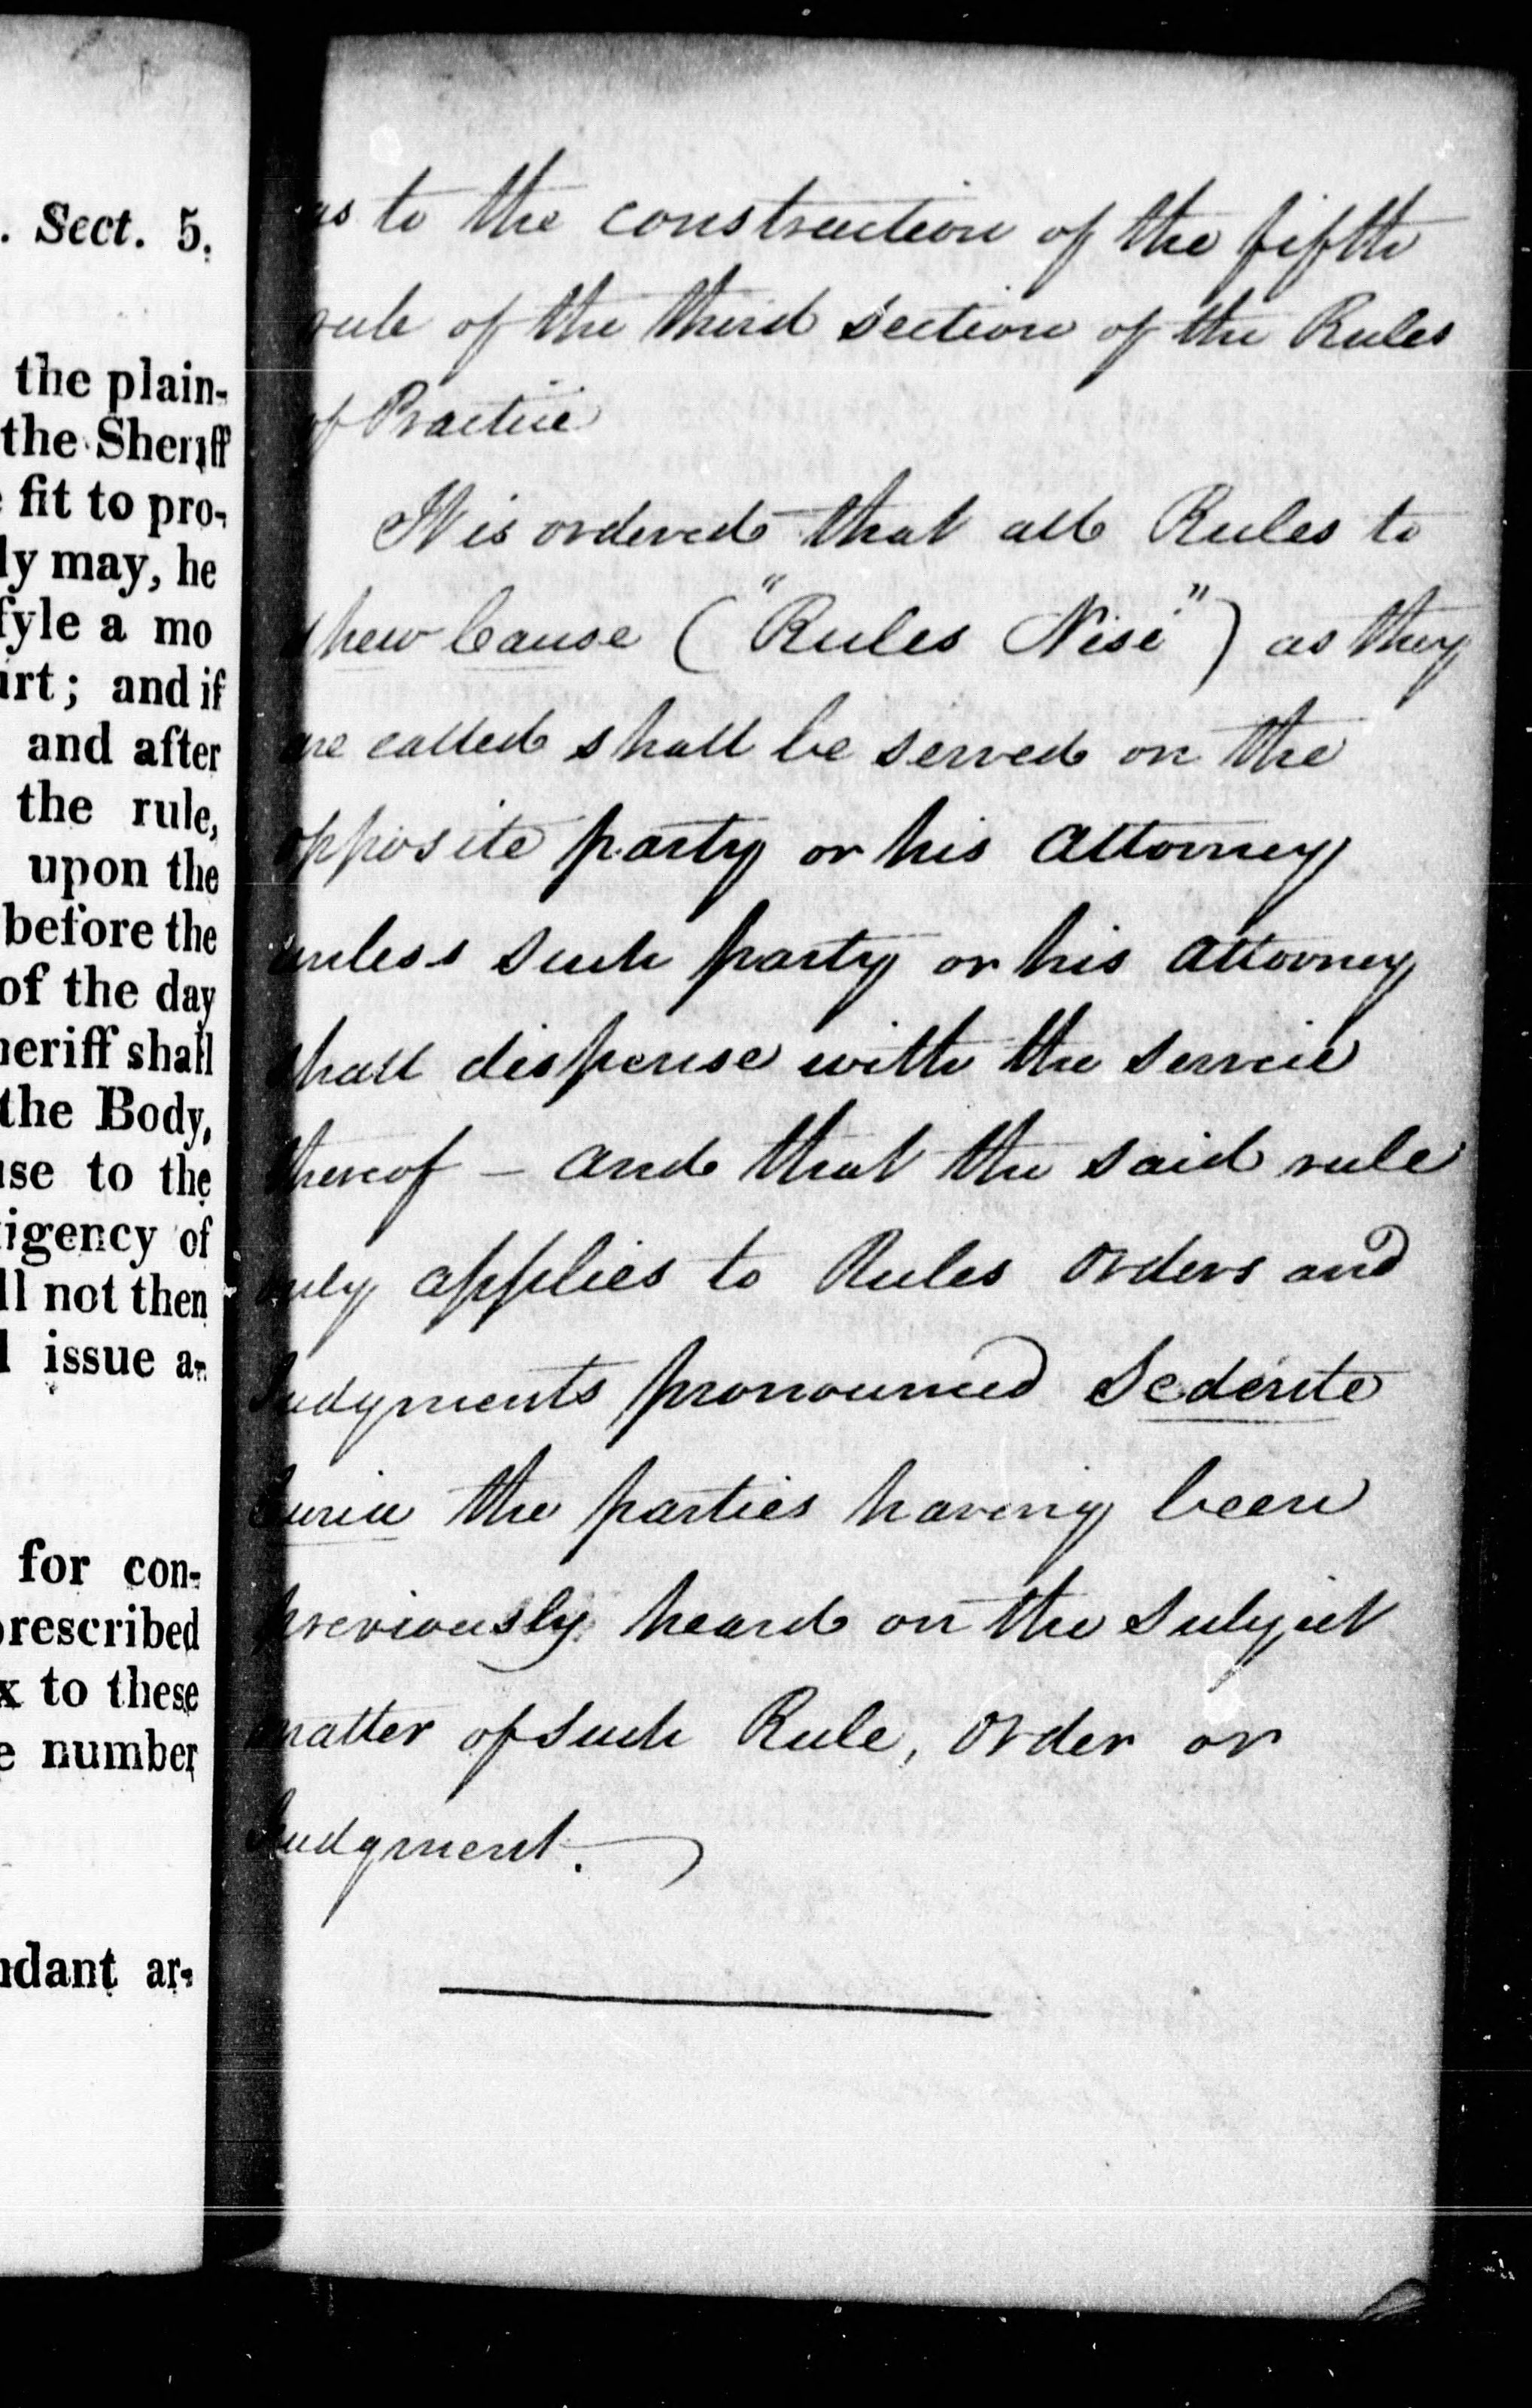 . Sect. 5.
the plain-
the Sheriff
fit to pro-
ly may, he
fyle a mo
irt; and if
and after
the rule,
upon the
before the
of the day
heriff shall
the Body,
use to the
igency of
ll not then
issue a-
for con-
prescribed
x to these
e number
ndant ar-
as to the construction of the fifth
rule of the third section of the Rules
of Practice
It is ordered that all Rules to
shew Cause ("Rules Nisi") as they
are called shall be served on the
opposite party or his Attorney
unless such party or his Attorney
shall dispense with the service
thereof – and that the said rule
only applies to Rules Orders and
Judgments pronounced Sedente
Curia the parties having been
previously heard on the subject
matter of such Rule, Order or
Judgment.